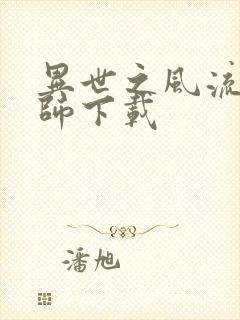 異世之風流
師下載
潘旭